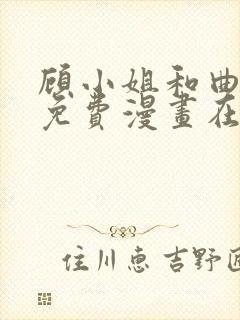 顾小姐和曲
免費漫畫在
住川惠吉野